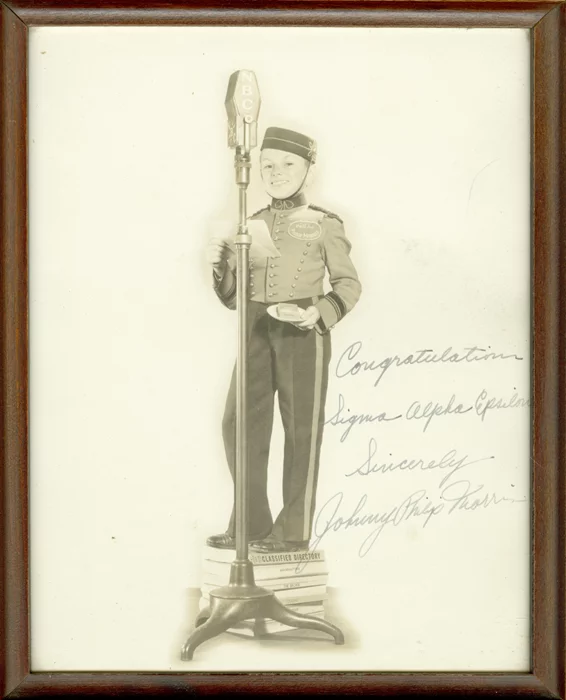 NBC
Congratulations
Sigma Alpha Epsilon
Sincerely
Johnny Philip Morris
CLASSIFIED DIRECTORY